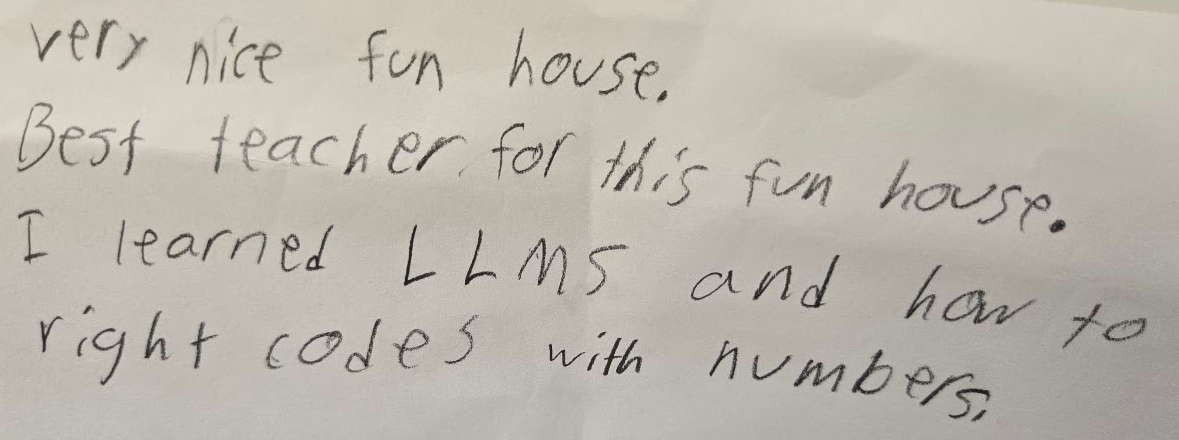 very nice fun house.
Best teacher for this fun house.
I learned LLMS and how to
right codes with numbers.